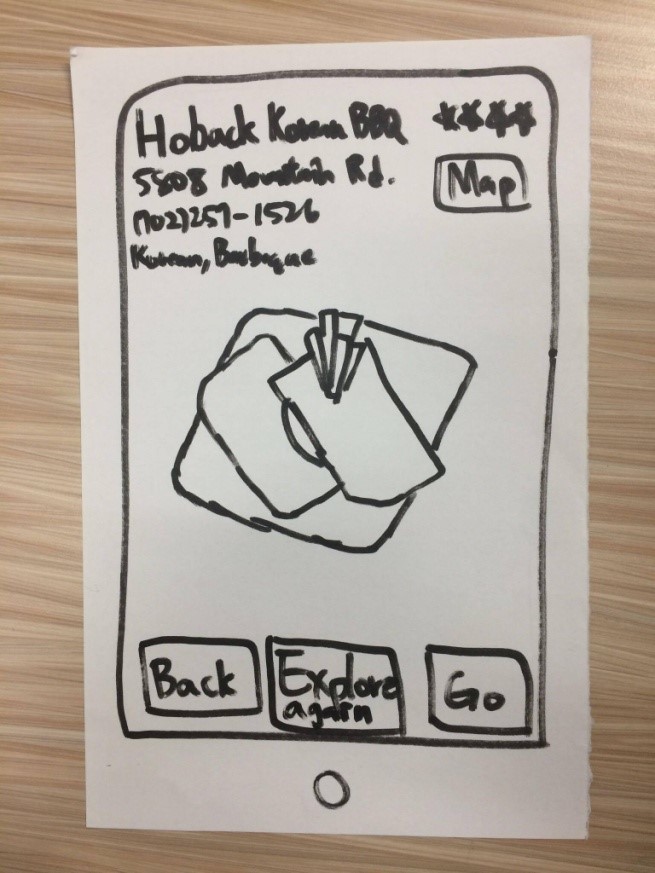 Hoback Korean BBQ ****
5808 Mountain Rd.
Map
(702)257-1526
Korean, Barbeque
Back
Explore
again
Go